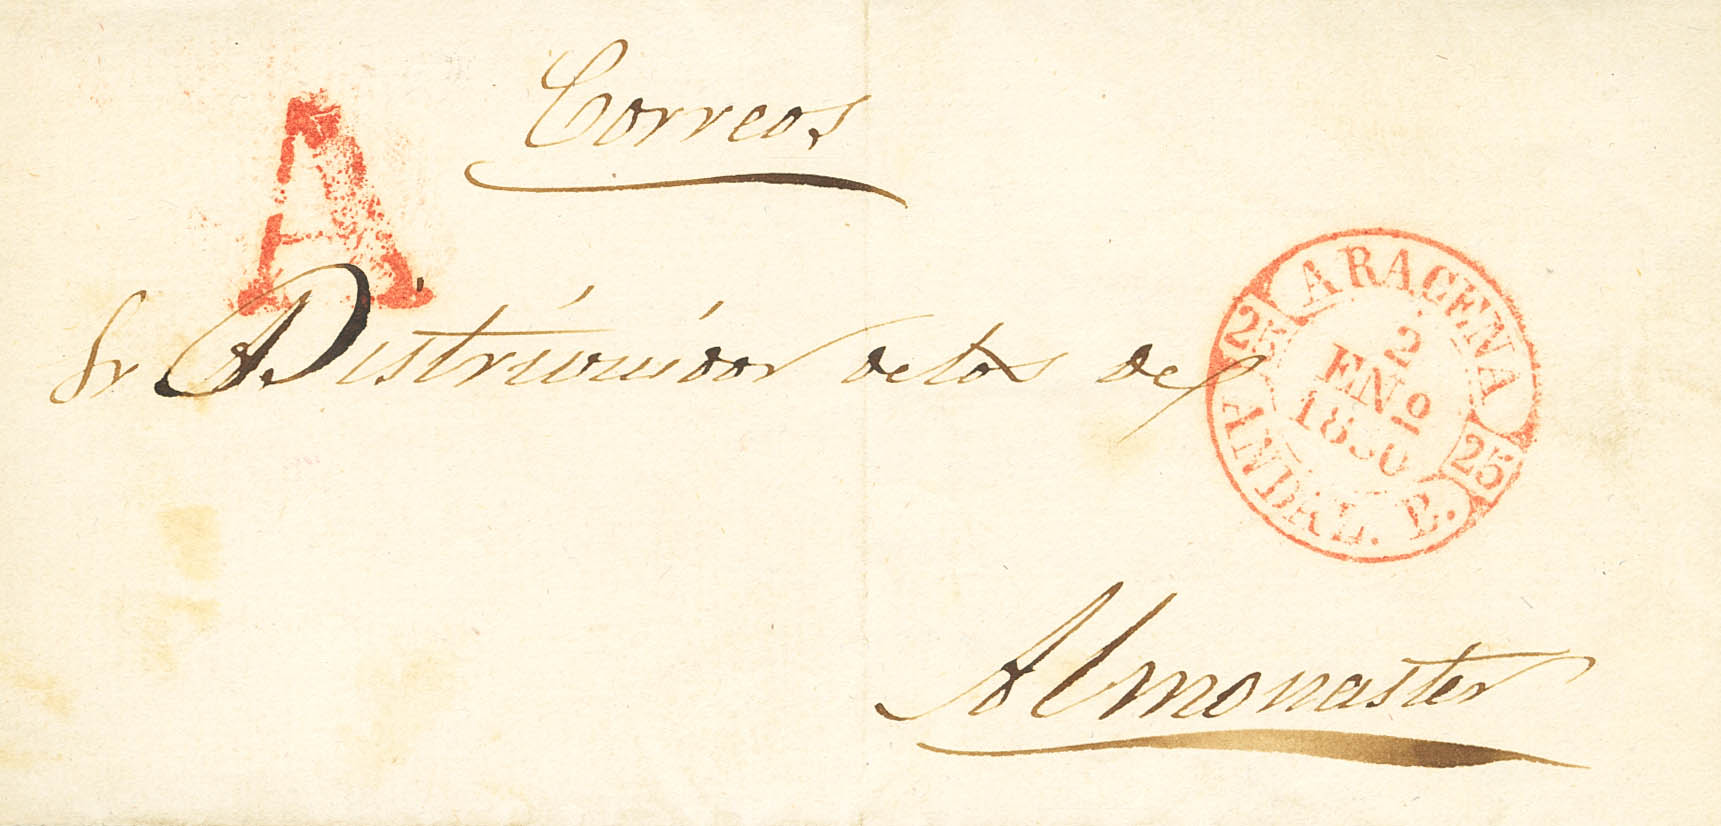 Correos
A
Sr Distribuidor de los de
Almonaster
ARACENA
25
2
ENº
1850
25
ANDAL. B.